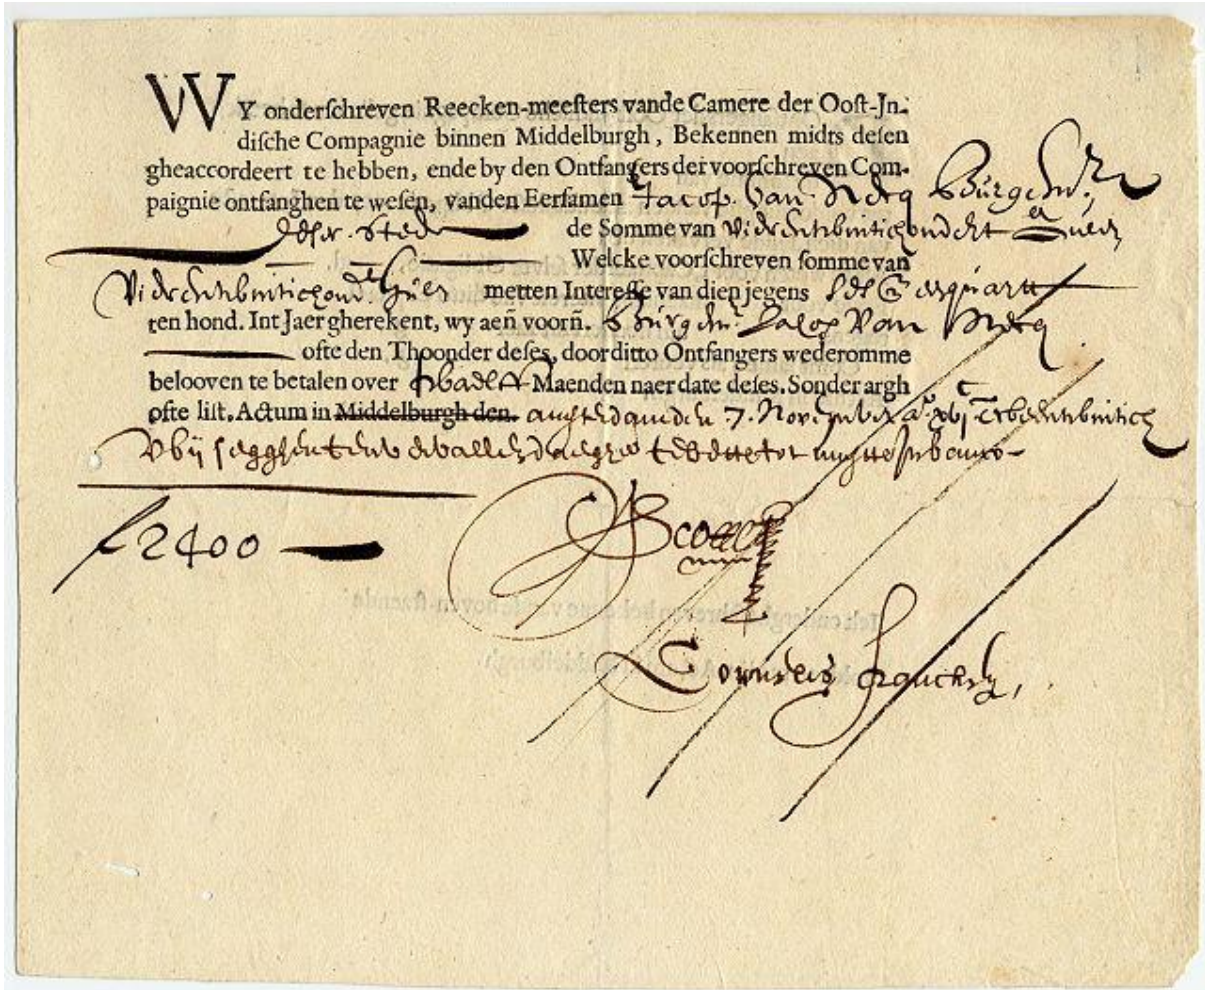 WY onderſchreven Reecken-meeſters vande Camere der Ooſt-Jn-
diſche Compagnie binnen Middelburgh, Bekennen midts deſen
gheaccordeert te hebben, ende by den Ontfangers der voorſchreven Com-
paignie ontfanghen te weſen, vanden Eerſamen Jacop van Neeq Burgemr
deser stede de Somme van vierentwintich ondert guld
Welcke voorſchreven ſomme van
vierentwintichond gul metten Intereſſe van dien jegens ses
ten hond. Int Jaer gherekent, wy aen̄ voorn̄. Burgemr Jacop van Neeq
ofte den Thoonder deſes, door ditto Ontfangers wederomme
belooven te betalen over twaelff Maenden naer date deſes. Sonder argh
ofte liſt. Actum in Middelburgh den. amsterdam den 7. November
vbij segghen
f 2400
Cornelis